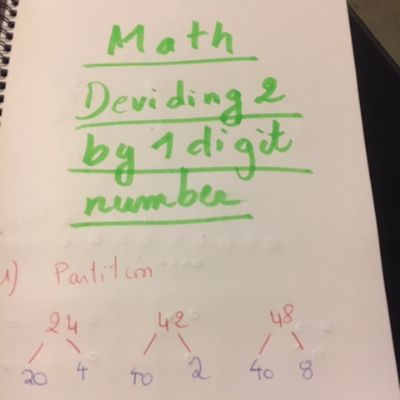 Math
Deviding 2
by 1 digit
number
1) Partition
24 42 48
20 4 40 2 40 8